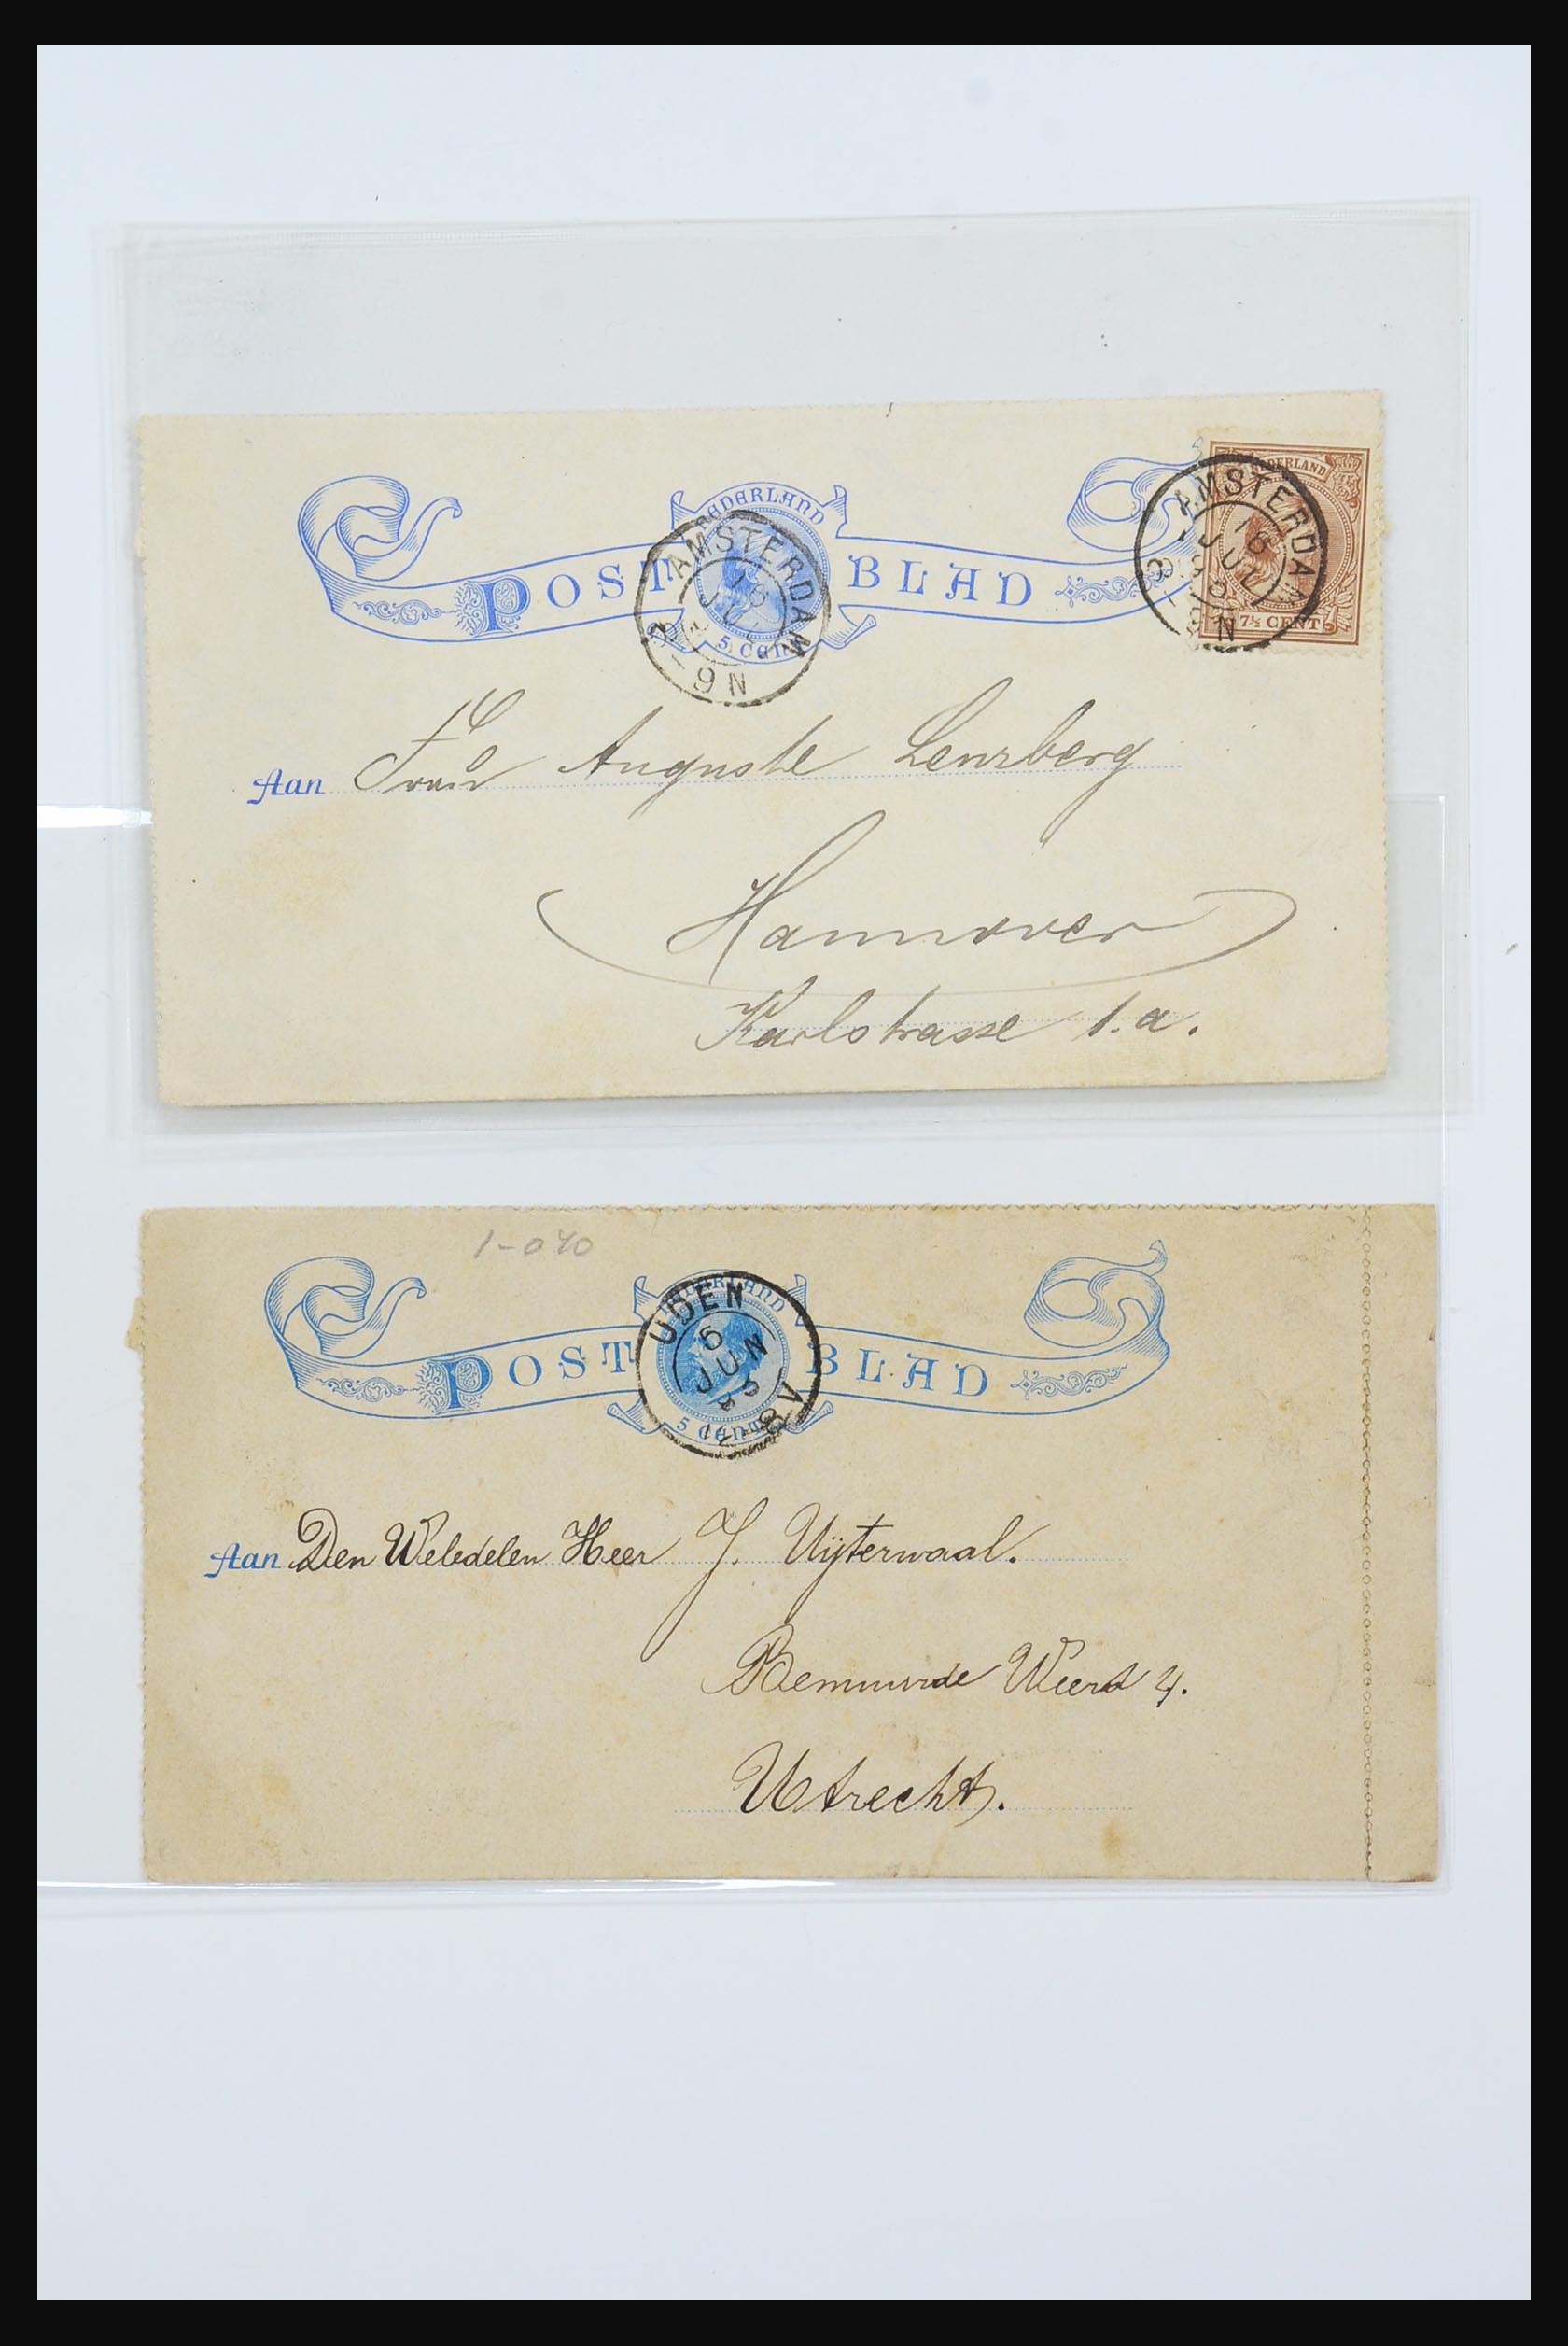 NEDERLAND
POST BLAD
5 CENT
AMSTERDAM
16
JUN
8-9N
NEDERLAND
7½ CENT
AMSTERDAM
16
JUN
8-9N
Aan Frau Auguste Lenzberg
Hannover
Karlstrasse 1.a.
1-040
NEDERLAND
POST BLAD
5 CENT
UDEN
5
JUN
8V
Aan Den Weledelen Heer J. Uijterwaal.
Bemuurde Weerd 4.
Utrecht.